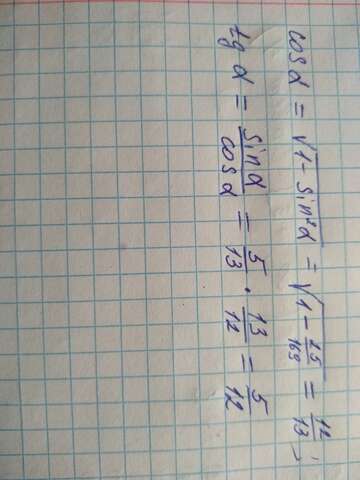 cos α = √1 - sin²α = √1 - 25/169 = 12/13;
tg α = sin α/cos α = 5/13 · 13/12 = 5/12